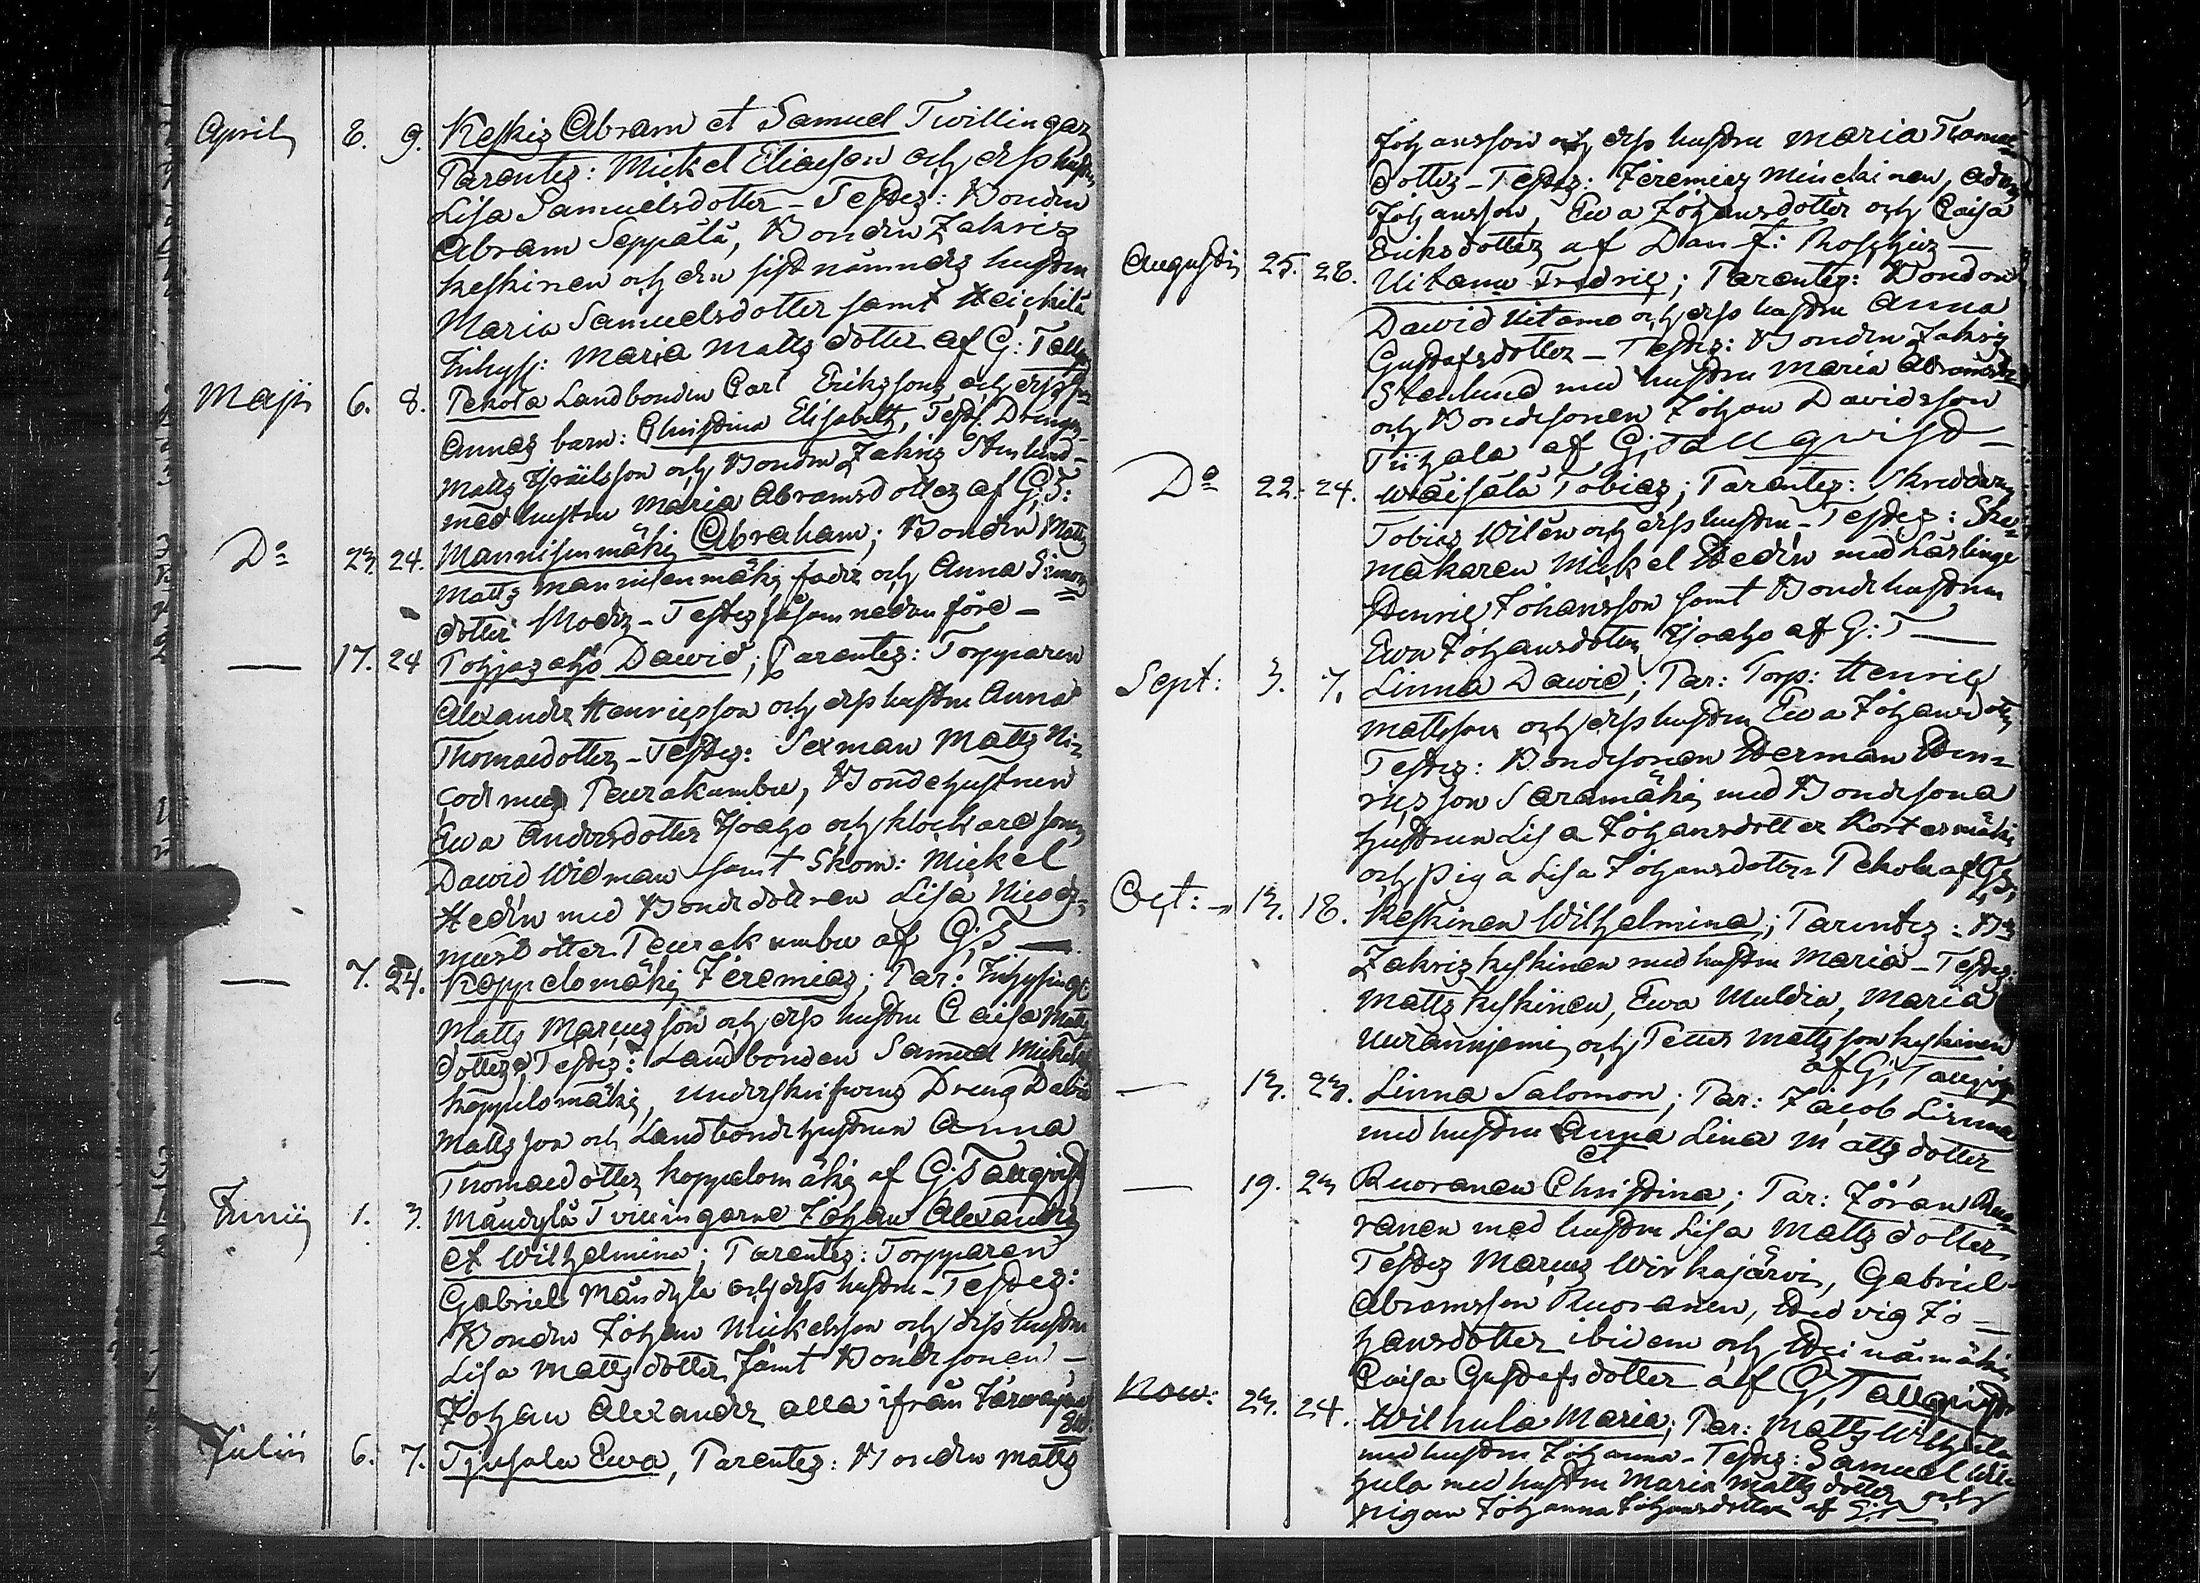 April 8. 9. Keskis Abram et Samuel Twillingar
Parentes: Mickel Eliasson och dess hustru
Lisa Samuelsdotter - Testes: Bonden
Abram Seppälä, Bonden Zakris
Keskinen och den sist nämndes hustru
Maria Samuelsdotter samt Heickilä
Inhyss: Maria Matts dotter af G: Tallqv
Maji 6. 8. Pekola Landbonden Carl Erikssons och dess h
Annas barn: Christina Elisabeth, Test. Drengen
Matts Israelsson och Bonden Zakris Stenlund
med hustru Maria Abramsdotter af G: T:
Do 23 24. Mannisenmäki Abraham; Bonden Matts
Matts Mannisenmäki fader och Anna Simons
dotter Moder - Testes såsom nedanföre -
— 17. 24 Pohjas aho Dawid; Parentes: Torpparen
Alexander Henricsson och dess hustru Anna
Thomasdotter - Testes: Sexman Matts Ni-
codemus Peurakumbu, Bondehustrun
Ewa Andersdotter Isoaho och klockaresonen
Dawid Widman samt Skom: Mickel
Hedén med Bondedottren Lisa Nicode-
musdotter Peurakumbu af G: T —
— 7. 24. Koppelomäki Jeremias; Par: Inhysinge
Matts Marcusson och dess hustru Caisa Matts
dotter, Testes: Landbonden Samuel Mickelss
Koppelomäki, Dreng David
Mattsson och Landbondehustrun Anna
Thomasdotter Koppelomäki af G: Tallqvist
Junii 1. 3. Mändylä Tvillingarne Johan Alexander
et Wilhelmina; Parentes: Torpparen
Gabriel Mändylä och dess hustru - Testes:
Bonden Johan Mickelsson och dess hustru
Lisa Mattsdotter samt Bondesonen -
Johan Alexander alla ifrån
Julii 6. 7. Ewa, Parentes: Bonden Matts
Johansson och dess hustru Maria Thomas
dotter - Testes: Jeremias Minckinen, Adam
Johansson, Ewa Johansdotter och Caisa
Eriksdotter af Dan f: Roschier —
Augusti 25. 28. Uitamo Fredric; Parentes: Bonden
Dawid Uitamo och dess hustru Anna
Gustafsdotter - Testes: Bonden Zakris
Stenlund med hustru Maria Abramsdr
och Bondesonen Johan Davidsson
Tiihala af G; Tallqwist —
Do 22. 24. Wäisälä Tobias; Parentes: Skreddaren
Tobias Wilén och dess hustru - Testes: Sko-
makaren Mickel Hedén med Lärlinge
Henric Johansson samt Bondehustrun
Ewa Johansdotter Isoaho af G: T —
Sept: 3. 7. Linna Dawid; Par: Torp: Henric
Mattsson och dess hustru Ewa Johansdotter
Testes: Bondesonen Herman Hen-
ricsson Saramäki med Bondesona
hustrun Lisa Johansdotter Kortesmäki
och Piga Lisa Johansdotter Pekola af G; T;
Oct: 13. 18. Keskinen Wilhelmina; Parentes: Bn
Zakris Keskinen med hustru Maria - Testes:
Matts Keskinen, Ewa Muldia, Maria
och Petter Mattsson Keskinen
af G; Tallqvist
— 13. 23. Linna Salomon; Par: Jacob Linna
med hustru Anna Lina Mattsdotter
— 19. 23 Ruoranen Christina; Par: Jöran Ruo-
ranen med hustru Lisa Mattsdotter.
Testes Marcus Wirkajärvi, Gabriel
Abramsson Ruoranen, Hedvig Jo-
hansdotter ibidem och Heinäsmäki
Caisa Gustafsdotter af G; Tallqvist
Now: 23. 24. Wilhula Maria; Par: Matts Wilhula
med hustru Johanna - Testes: Samuel Wil-
hula med hustru Maria Mattsdotter och
Pigan Johanna Johansdotter af G: T —